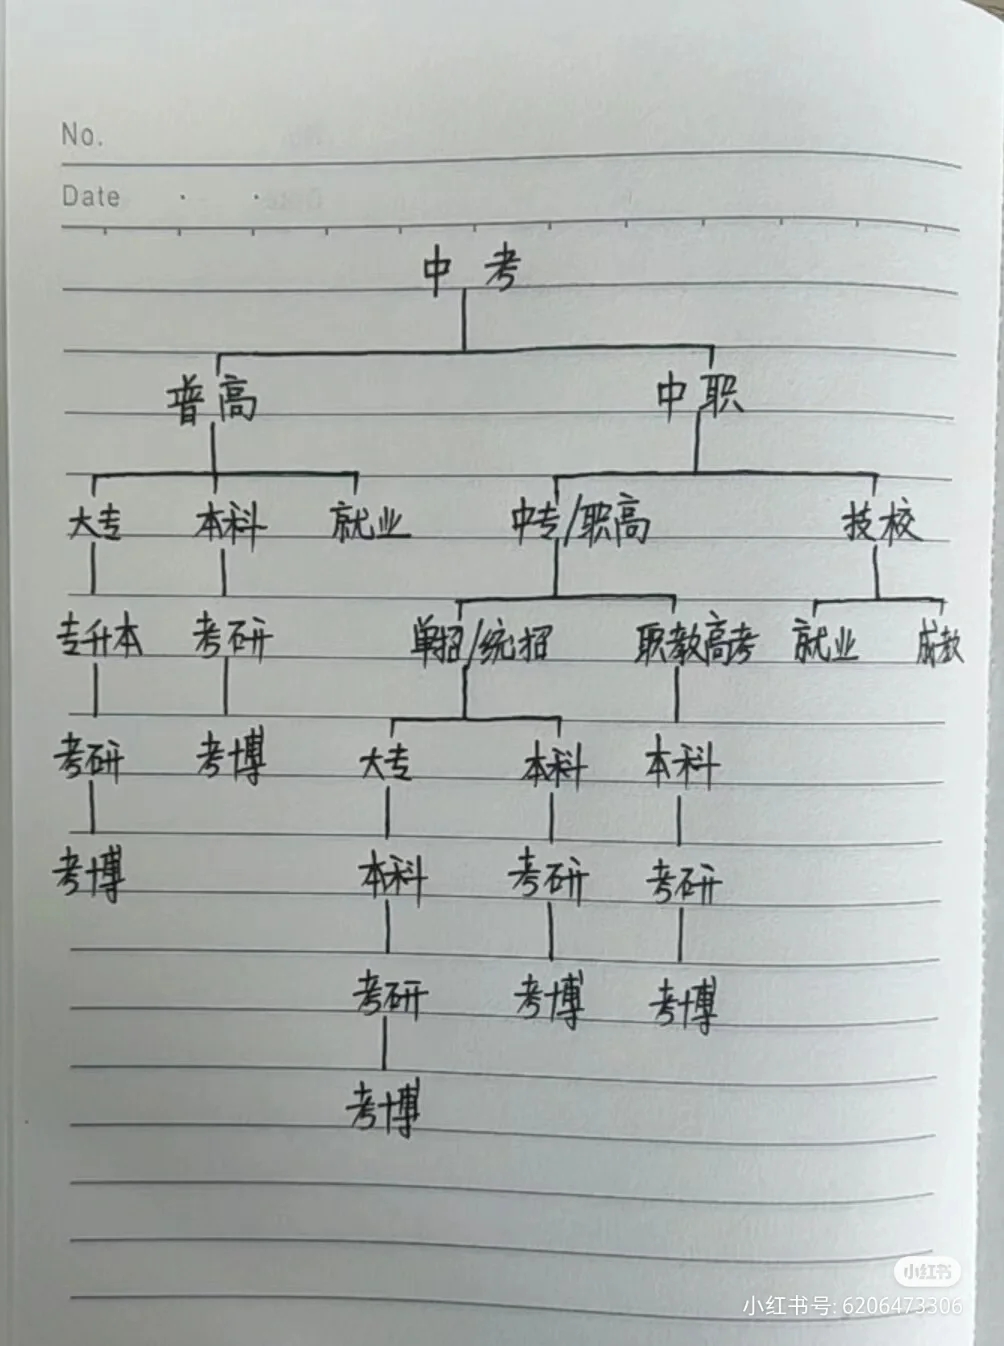 No.
Date
中考
普高 中职
大专 本科 就业 中专/职高 技校
专升本 考研 单招/统招 职教高考 就业 成教
考研 考博 大专 本科 本科
考博 本科 考研 考研
考研 考博 考博
考博
小红书
小红书号: 6206473306